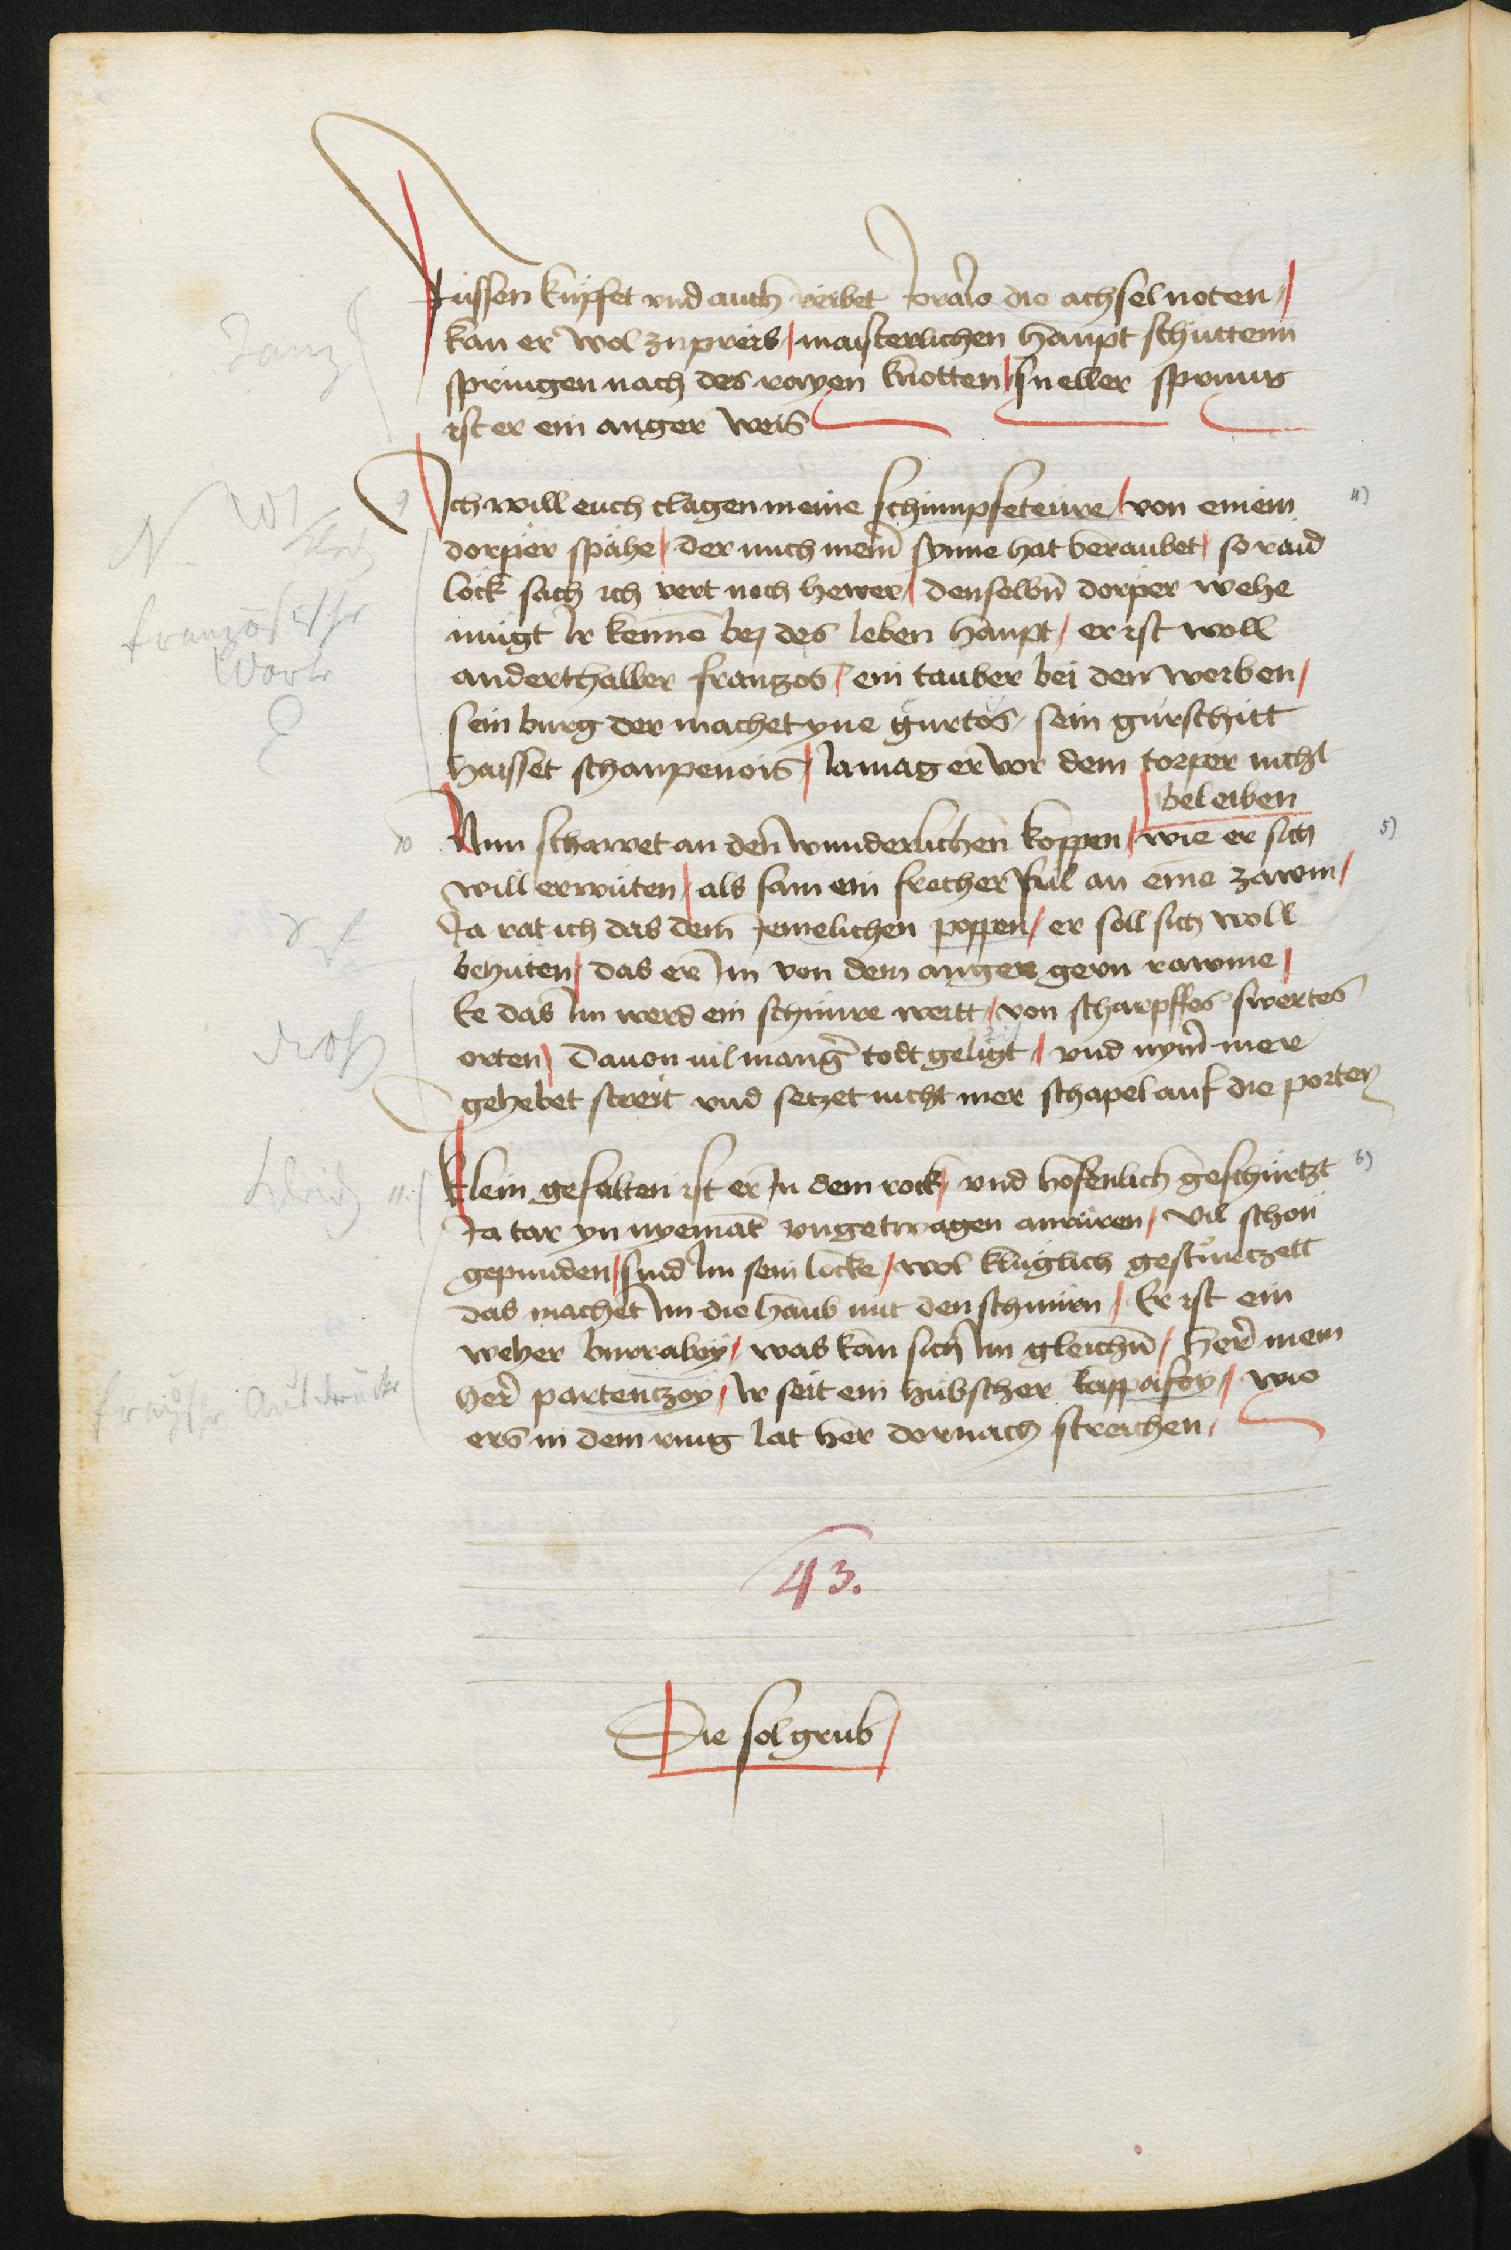 Füssen knipfet vnd auch reibet die achsel noten /
kan er wol zu preis / maisterlichen haupt schuttenn
springen nach des rayen knotten / sneller sprung
ist er ein anger weis
Tanz
Ich will euch clagen meine schimpfeteure / von einem
dorper spähe / der mich meiñ synne hat beraubet / so raid
lock sach ich vert noch hewer / denselbñ dorper wehe
mügt Ir kennē bej des leben haupt / er ist woll
anderthalber franzos / ein tauber bei den weiben /
sein burg der machet yne gurtos / sein gürschitt
haisset schanpenois / Ia mag er vor dem torper nicht
beleiben
9
4)
N
Kleid
französische
Worte
Nun schawet an den wunderlichen koppen / wie er sich
will erwüten / als sam ein frecher ful an eine zawm /
Ia rat ich das dem Iemelichen poppen / er soll sich woll
behüten / das er Im von dem anger gern rawme /
Ee das Im werd ein schimre weitt / von scharpffes swertes
orten / Dauon vil mang̃ todt geligt / vnd nym̃ mer
gehebet streit vnd setzet nicht mer schapel auf die porten
10
5)
Droh
Klein gefalten ist er In dem rock / vnd hofenlich geschürtzt
Ia tar yn nyemāt vngetwagen anrüren / vil schon
gepunden / sind Im sein locke / wol kluglich gesturtzett
das machet Im die haub mit den schnürn / Er ist ein
weher burrabey / was kan sich Im gleichñ / her̃ mein
her̃ partentzoy / Ir seit ein hübscher kappafoy / wie
ers in dem ring lat her dornach streichen /
Kleid
11.
6)
französ. Ausdrücke
43.
Die sol grub